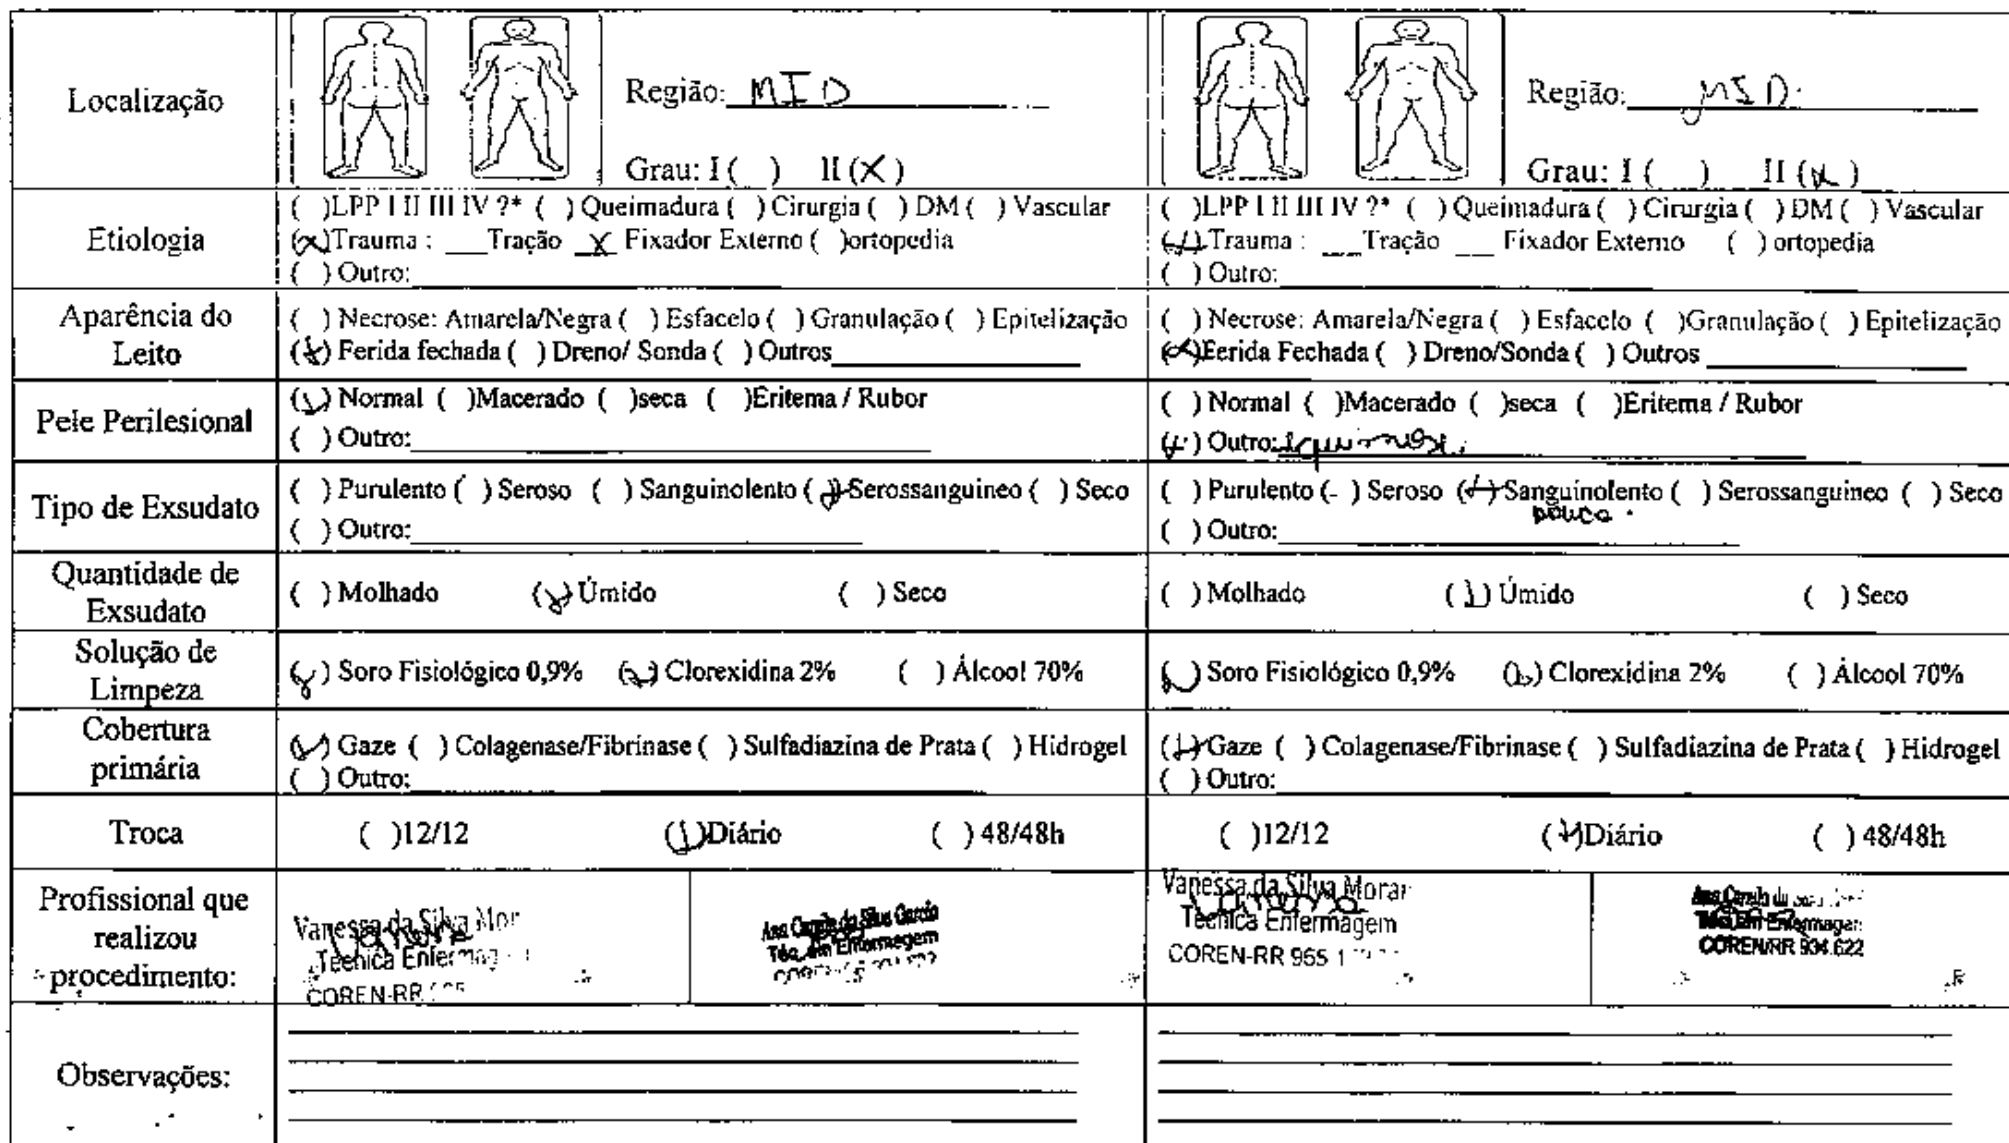 Localização
Região: MID
Grau: I ( ) II (X)
Região: MID.
Grau: I ( ) II (x)
Etiologia
( )LPP I II III IV ?* ( ) Queimadura ( ) Cirurgia ( ) DM ( ) Vascular
(x)Trauma : ___Tração _X_ Fixador Externo ( )ortopedia
( ) Outro:
( )LPP I II III IV ?* ( ) Queimadura ( ) Cirurgia ( ) DM ( ) Vascular
(x)Trauma : ___Tração ___ Fixador Externo ( ) ortopedia
( ) Outro:
Aparência do
Leito
( ) Necrose: Amarela/Negra ( ) Esfacelo ( ) Granulação ( ) Epitelização
(x) Ferida fechada ( ) Dreno/ Sonda ( ) Outros
( ) Necrose: Amarela/Negra ( ) Esfacelo ( )Granulação ( ) Epitelização
(x)Ferida Fechada ( ) Dreno/Sonda ( ) Outros
Pele Perilesional
(x) Normal ( )Macerado ( )seca ( )Eritema / Rubor
( ) Outro:
( ) Normal ( )Macerado ( )seca ( )Eritema / Rubor
(x) Outro:
Tipo de Exsudato
( ) Purulento ( ) Seroso ( ) Sanguinolento (x) Serossanguineo ( ) Seco
( ) Outro:
( ) Purulento ( ) Seroso (x) Sanguinolento ( ) Serossanguineo ( ) Seco
pouco.
( ) Outro:
Quantidade de
Exsudato
( ) Molhado (x) Úmido ( ) Seco
( ) Molhado (x) Úmido ( ) Seco
Solução de
Limpeza
(x) Soro Fisiológico 0,9% (x) Clorexidina 2% ( ) Álcool 70%
(x) Soro Fisiológico 0,9% (x) Clorexidina 2% ( ) Álcool 70%
Cobertura
primária
(x) Gaze ( ) Colagenase/Fibrinase ( ) Sulfadiazina de Prata ( ) Hidrogel
( ) Outro:
(x) Gaze ( ) Colagenase/Fibrinase ( ) Sulfadiazina de Prata ( ) Hidrogel
( ) Outro:
Troca
( )12/12 (x)Diário ( ) 48/48h
( )12/12 (x)Diário ( ) 48/48h
Profissional que
realizou
procedimento:
Vanessa da Silva Mor
Técnica Enfermag
COREN-RR
Ana Carola da Silva Garcia
Téc. em Enfermagem
Vanessa da Silva Morar
Técnica Enfermagem
COREN-RR 965 1
Téc. em Enfermagem
COREN/RR 934.622
Observações: